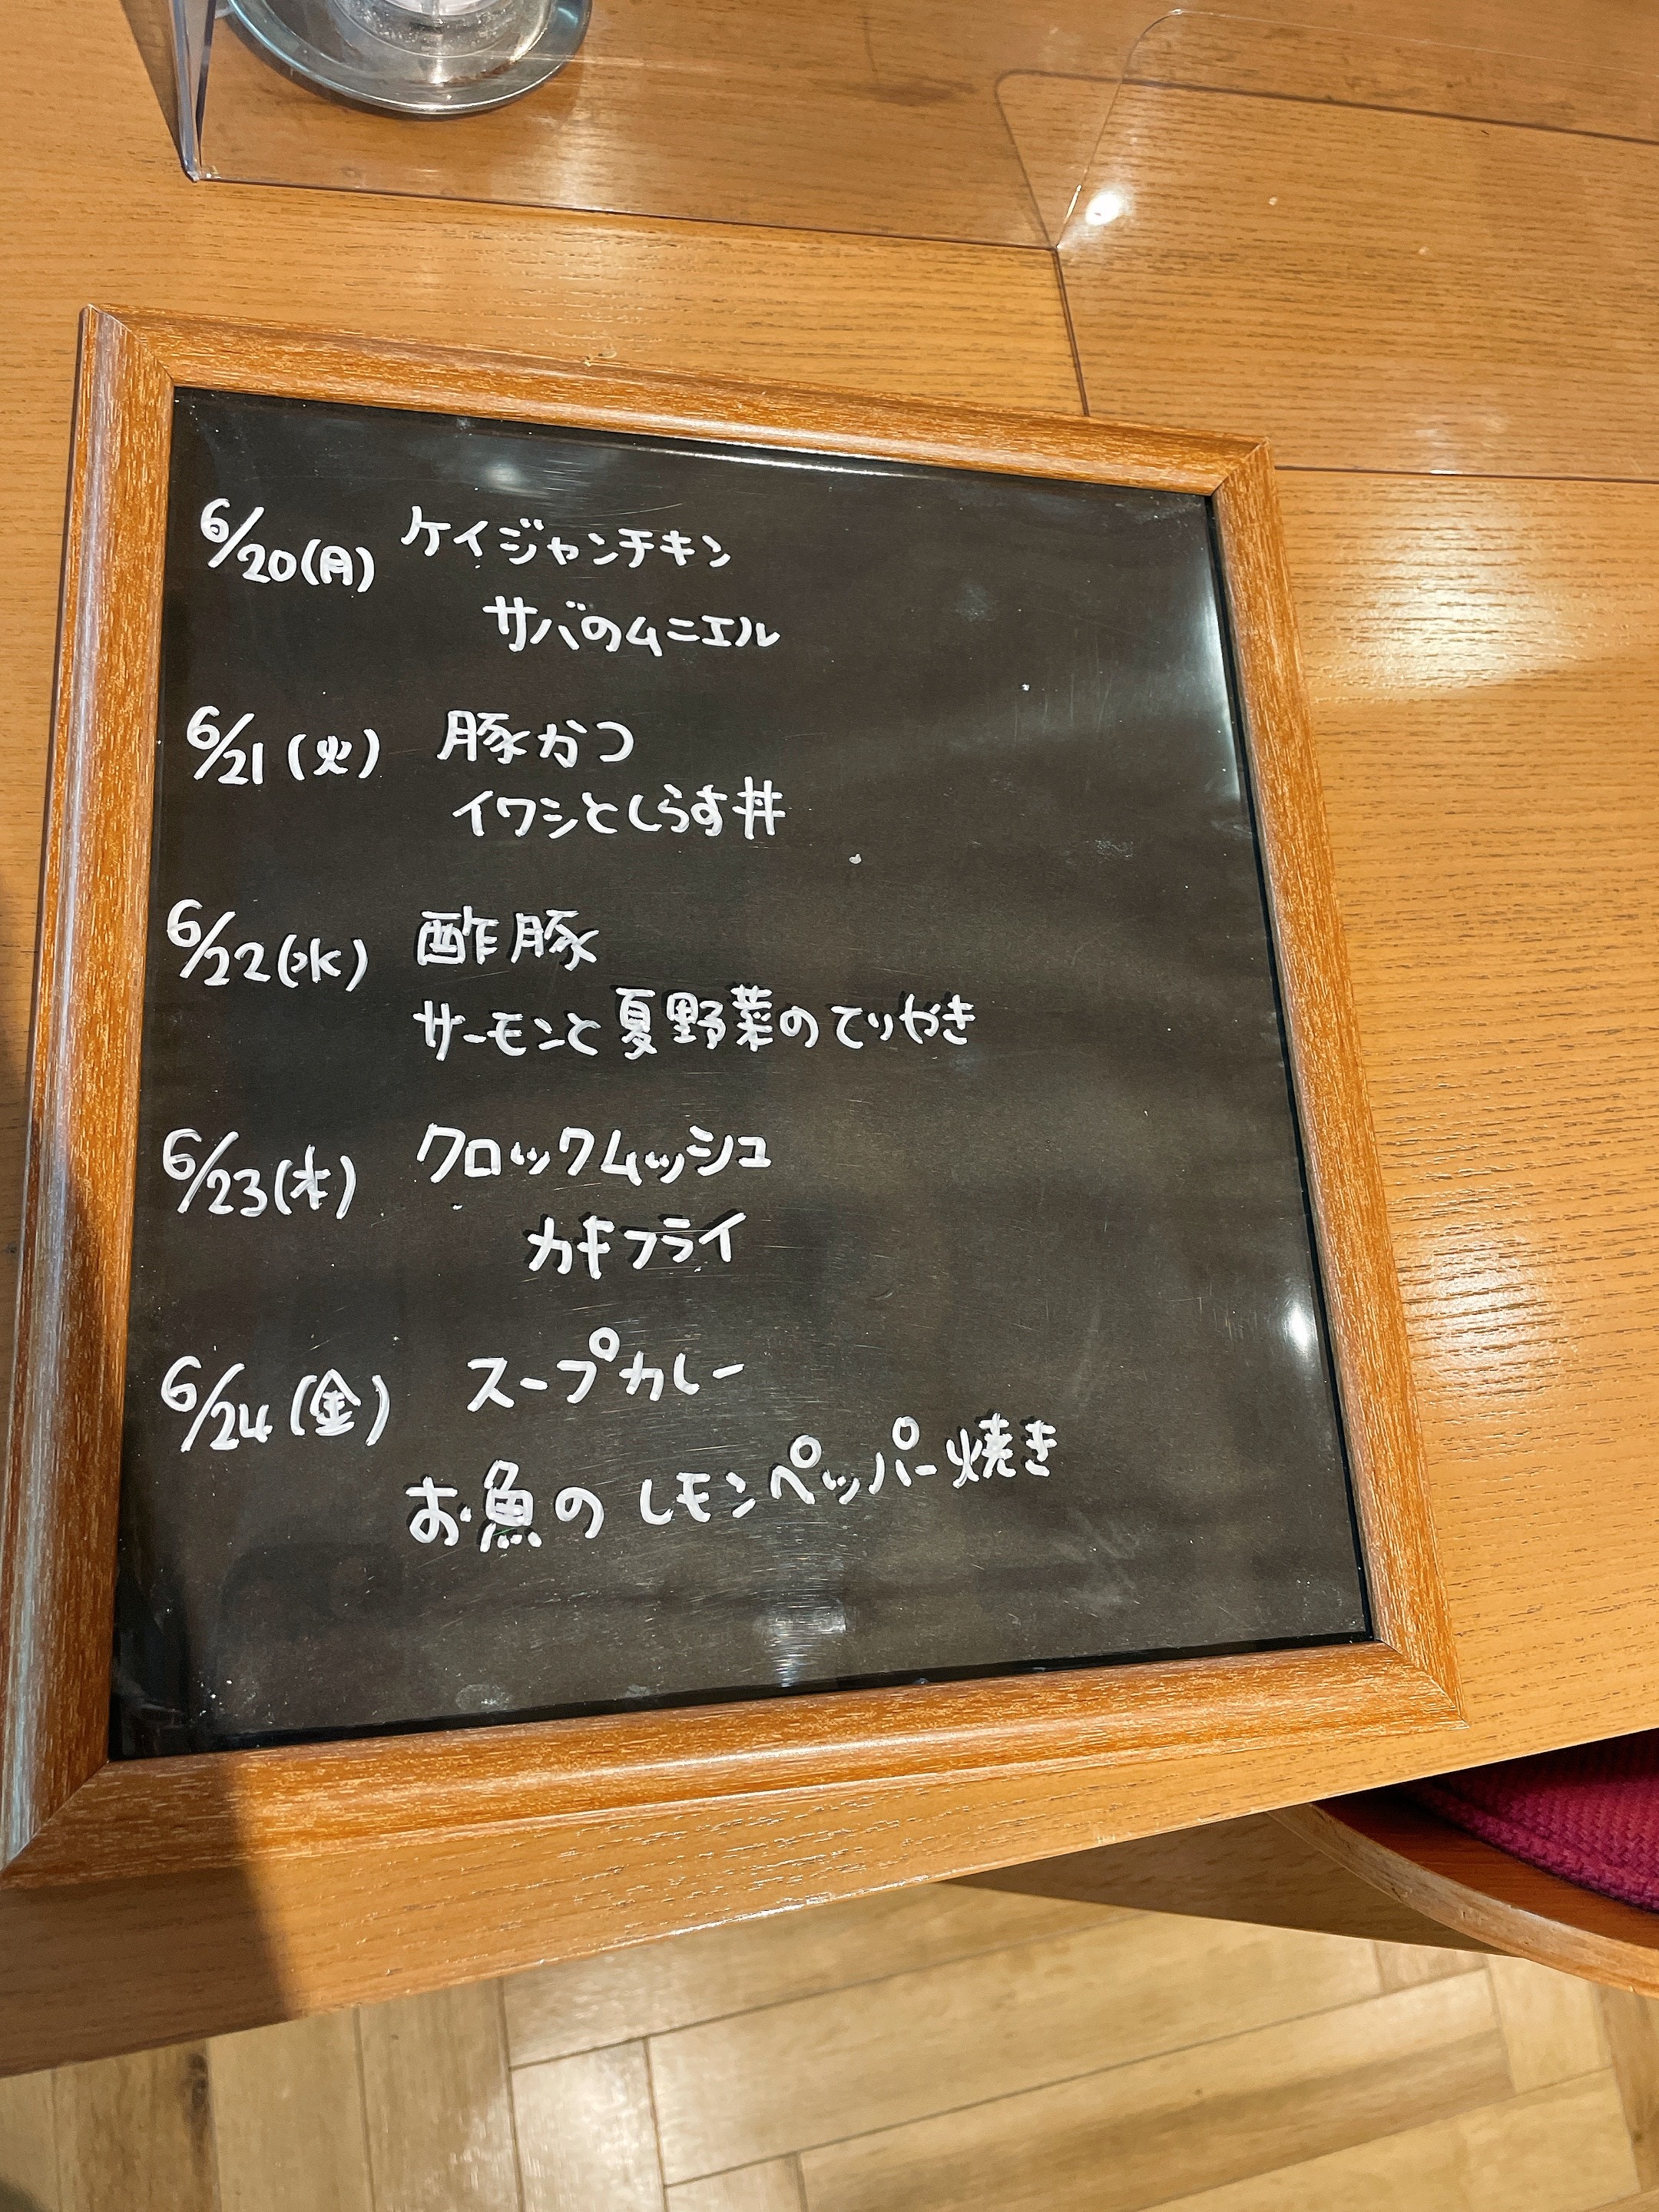 6/20(月) ケイジャンチキン
サバのムニエル
6/21(火) 豚かつ
イワシとしらす丼
6/22(水) 酢豚
サーモンと夏野菜のてりやき
6/23(木) クロックムッシュ
カキフライ
6/24(金) スープカレー
お魚のレモンペッパー焼き